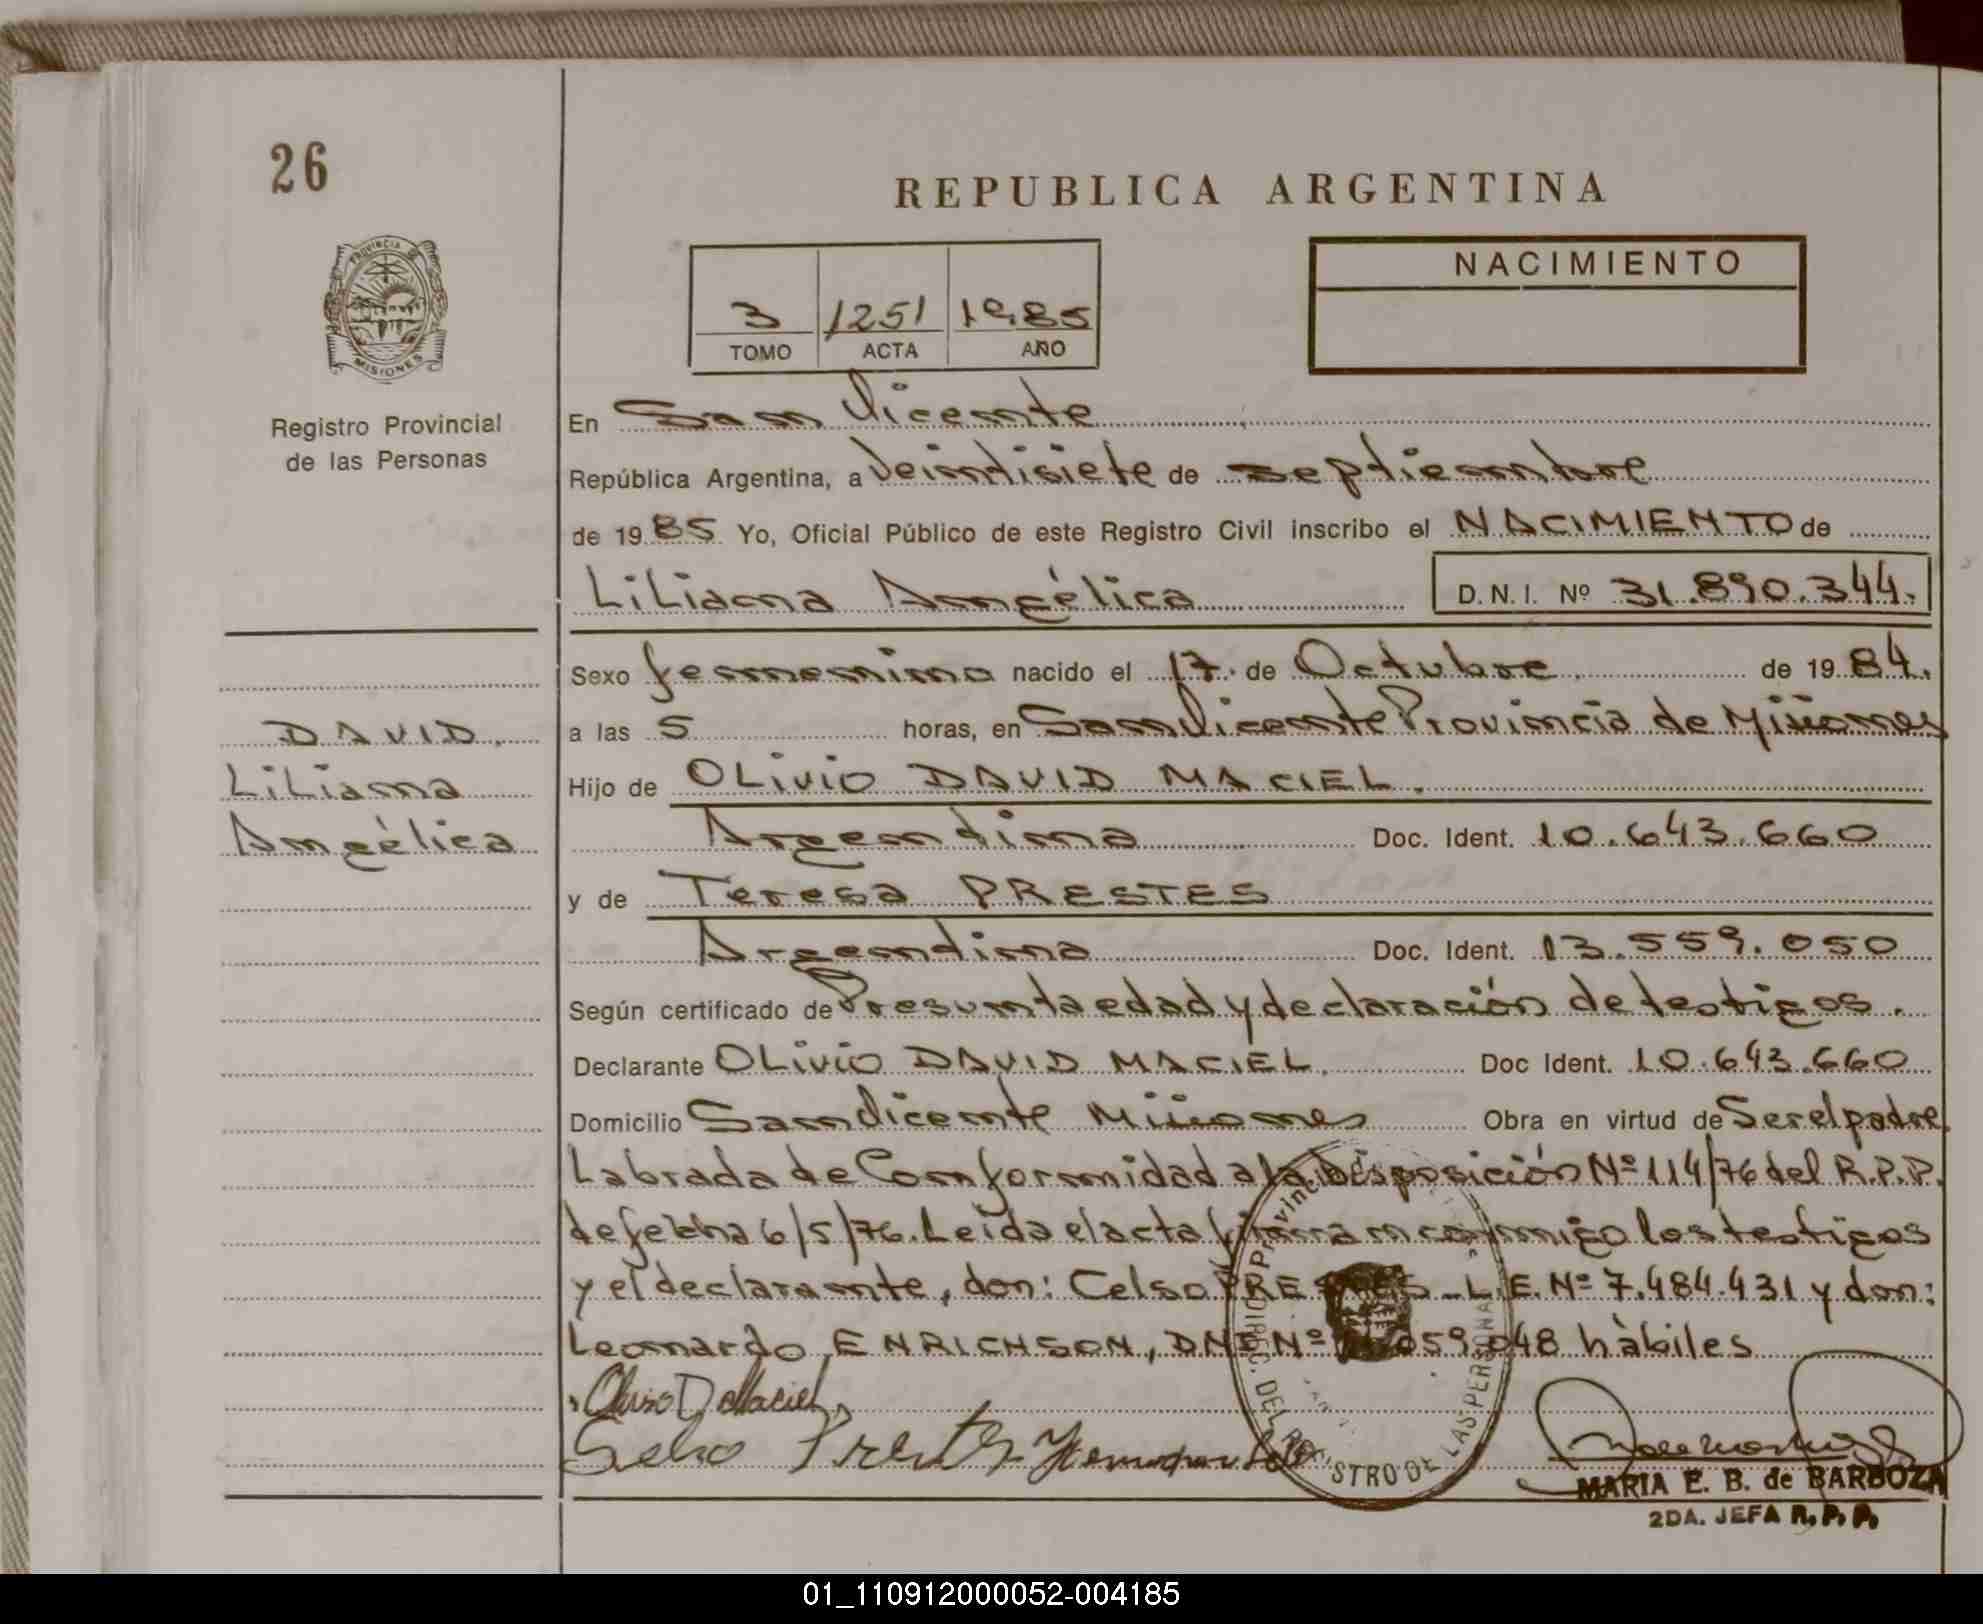 26
REPUBLICA ARGENTINA
PROVINCIA DE
MISIONES
NACIMIENTO
3 1251 1985
TOMO ACTA AÑO
Registro Provincial
de las Personas
En San Vicente
República Argentina, a Veintisiete de septiembre
de 1985 Yo, Oficial Público de este Registro Civil inscribo el NACIMIENTO de
Liliana Angélica D.N.I. Nº 31.890.344.
Sexo femenino nacido el 17 de Octubre de 1984.
DAVID,
Liliana
Angélica
a las 5 horas, en San Vicente Provincia de Misiones
Hijo de OLivio DAVID MACIEL.
Argentina Doc. Ident. 10.643.660
y de Teresa PRESTES
Argentina Doc. Ident. 13.559.050
Según certificado de Presunta edad y declaración de testigos.
Declarante OLivio DAVID MACIEL. Doc Ident. 10.643.660
Domicilio San Vicente Misiones Obra en virtud de Ser el padre,
Labrada de Conformidad a la Disposición Nº 114/76 del R.P.P.
de fecha 6/5/76. Leída el acta firman conmigo los testigos
y el declarante, don: Celso PRESTES - L.E. Nº 7.484.431 y don:
Leonardo ENRICHSON, DNI Nº 059.048 hàbiles
Olivio D Maciel
Selso Prestes
MARIA E. B. de BARBOZA
2DA. JEFA R.P.P.
01_110912000052-004185